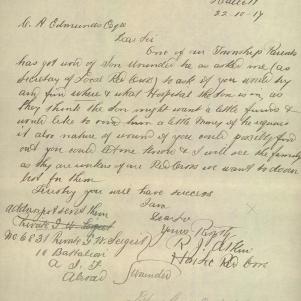 Hallett
22-10-17
C. A. Edmunds Esq
Dear Sir
One of our Township Parents
has got word of Son Wounded he as asked me (as
Secretary of Local Red Cross) to ask if you would try
and find where & what Hospital the Son is in, as
they think the Son might want a little funds &
would like to send him a little money if he requires
it also nature of wound if you could possibly find
out you would let me know & I will see the family
as they are workers of our Red Cross we want to do our
best for them
Trusting you will have success
I am
Dear Sir
Yours
R J
Red Cross
address not sent them
Private
No 6831 Private
10 Battalion
A I F
Abroad
Wounded